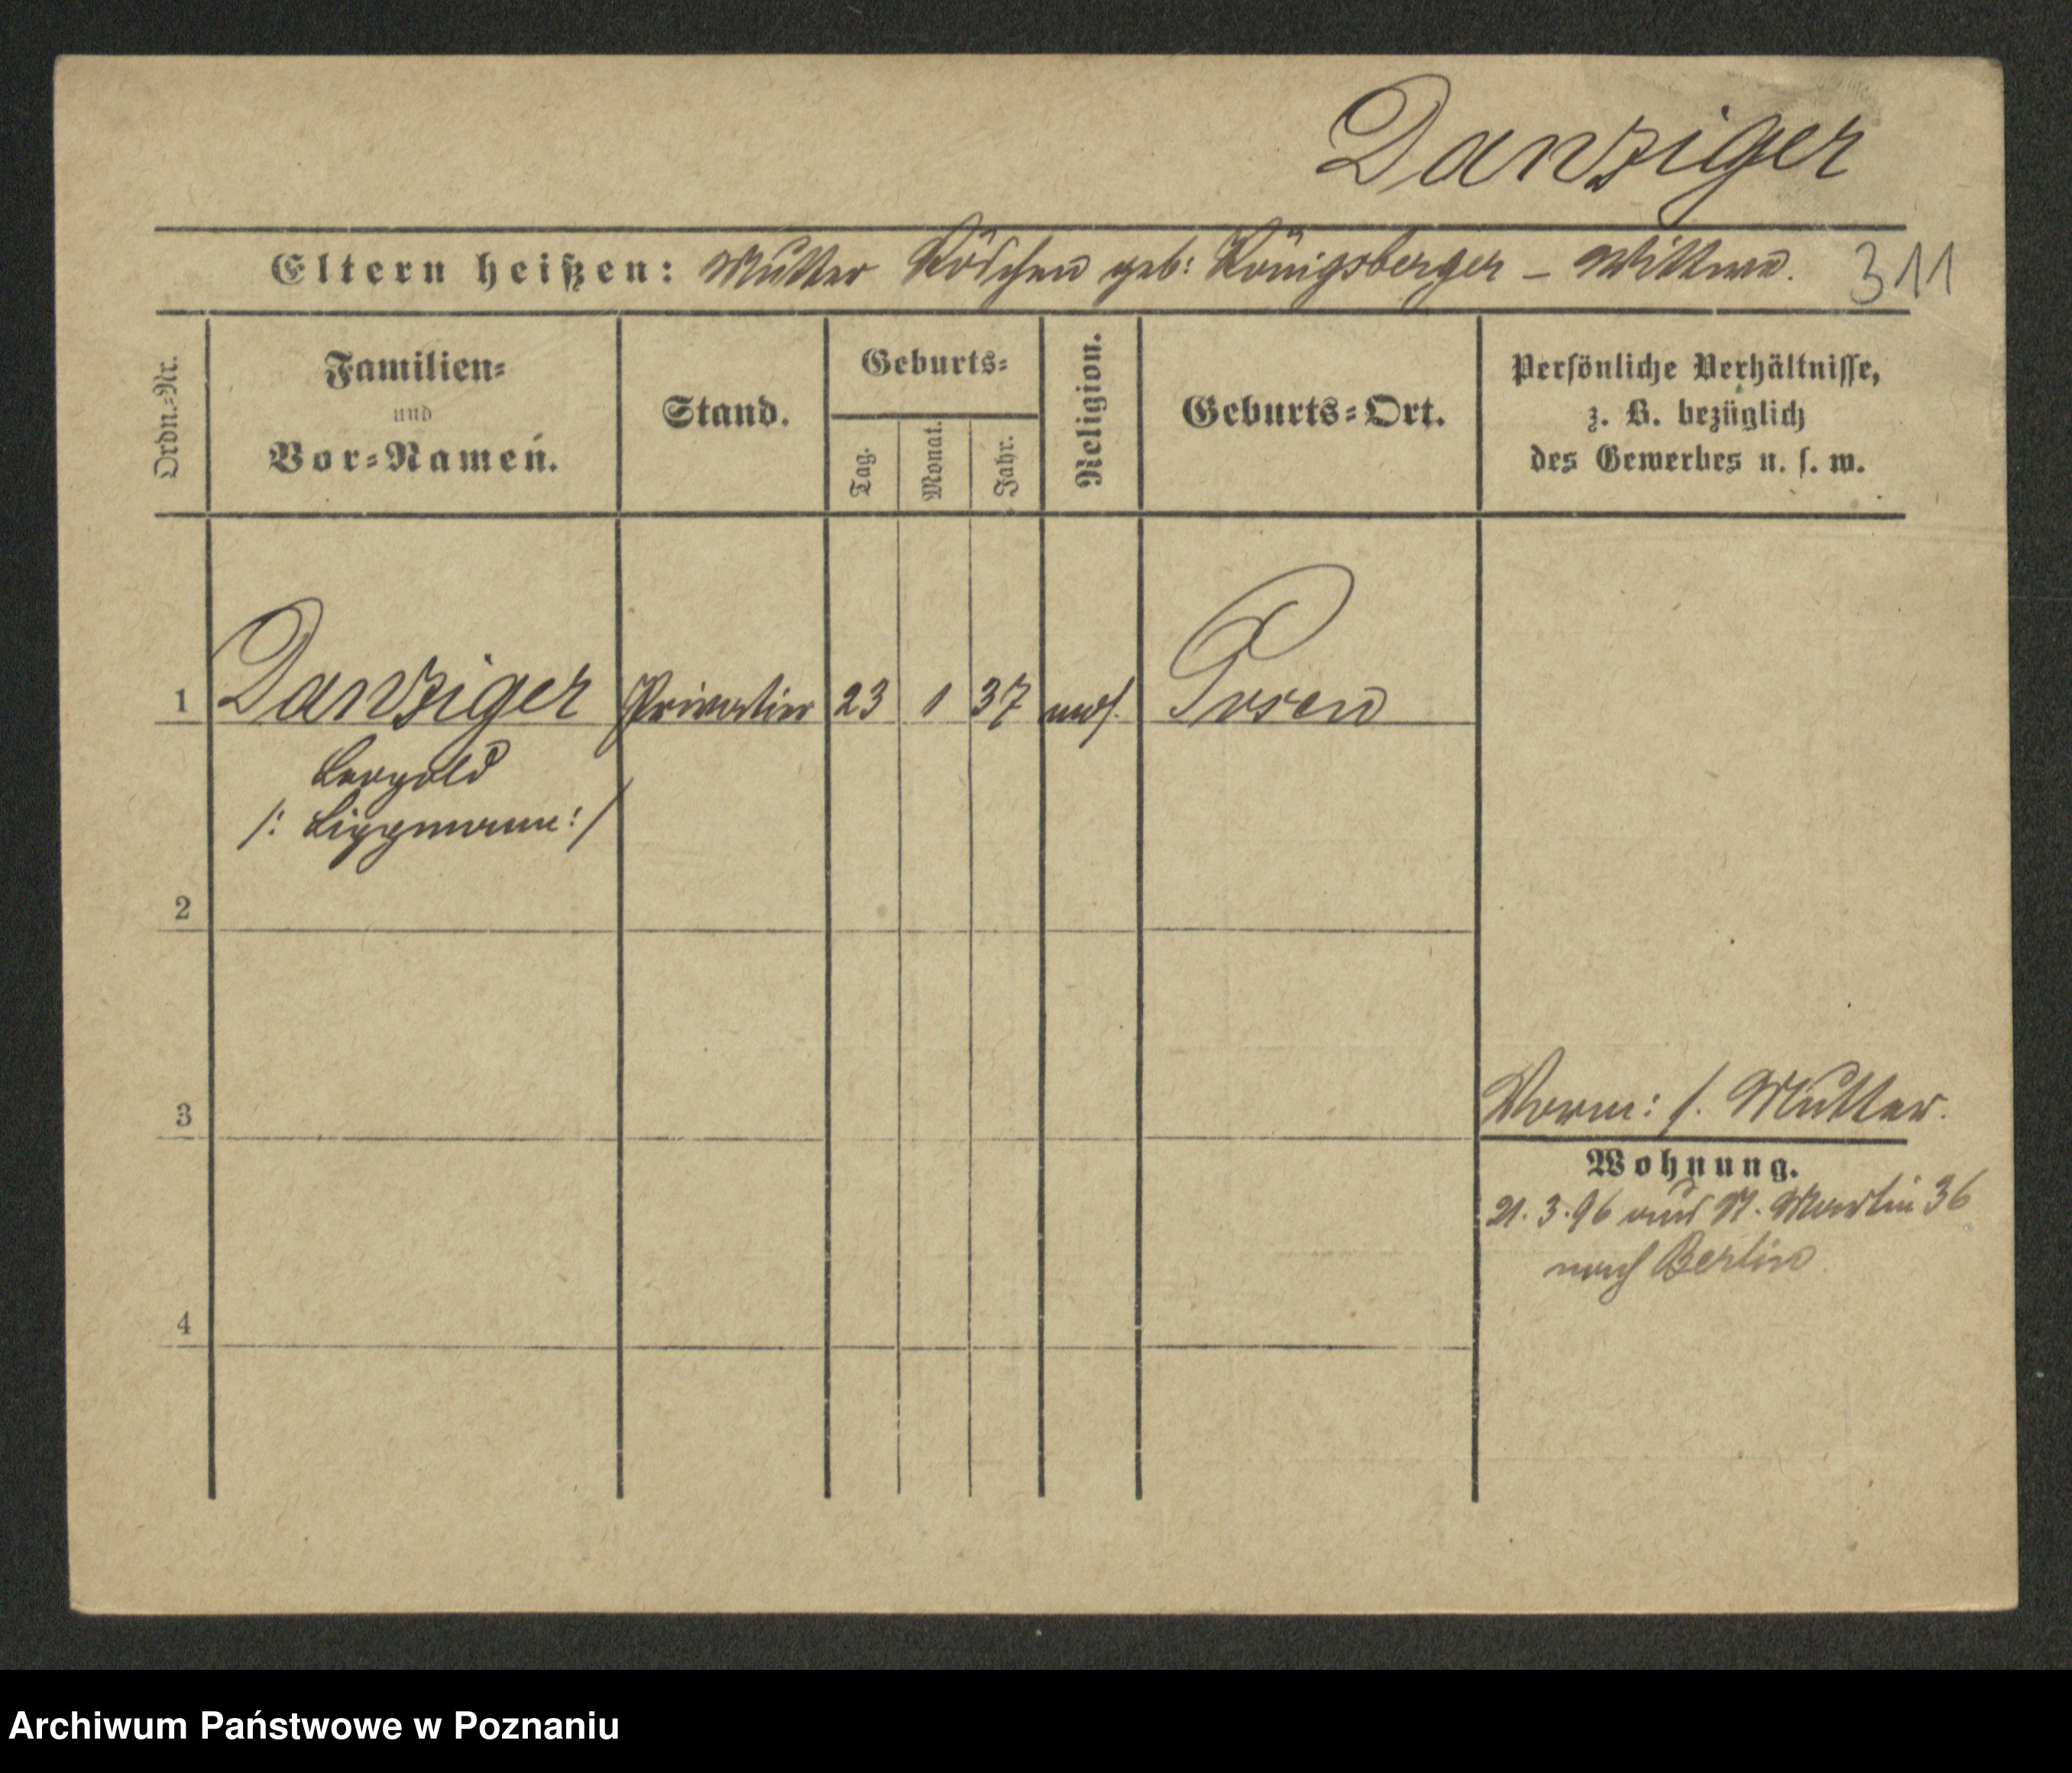 Danziger
Eltern heißen: Mutter Röschen geb: Königsberger – Wittwe.
311
Ordn.-Nr.
Familien-
und
Vor-Namen.
Stand.
Geburts-
Tag.
Monat.
Jahr.
Religion.
Geburts-Ort.
Persönliche Verhältnisse,
z. B. bezüglich
des Gewerbes u. s. w.
1 Danziger Privatier 23 1 37 mos. Posen
Leopold
/: Lippmann :/
2
3
Vorm: s. Mutter.
Wohnung.
21. 3. 96 aus St. Martin 36
nach Berlin
4
Archiwum Państwowe w Poznaniu